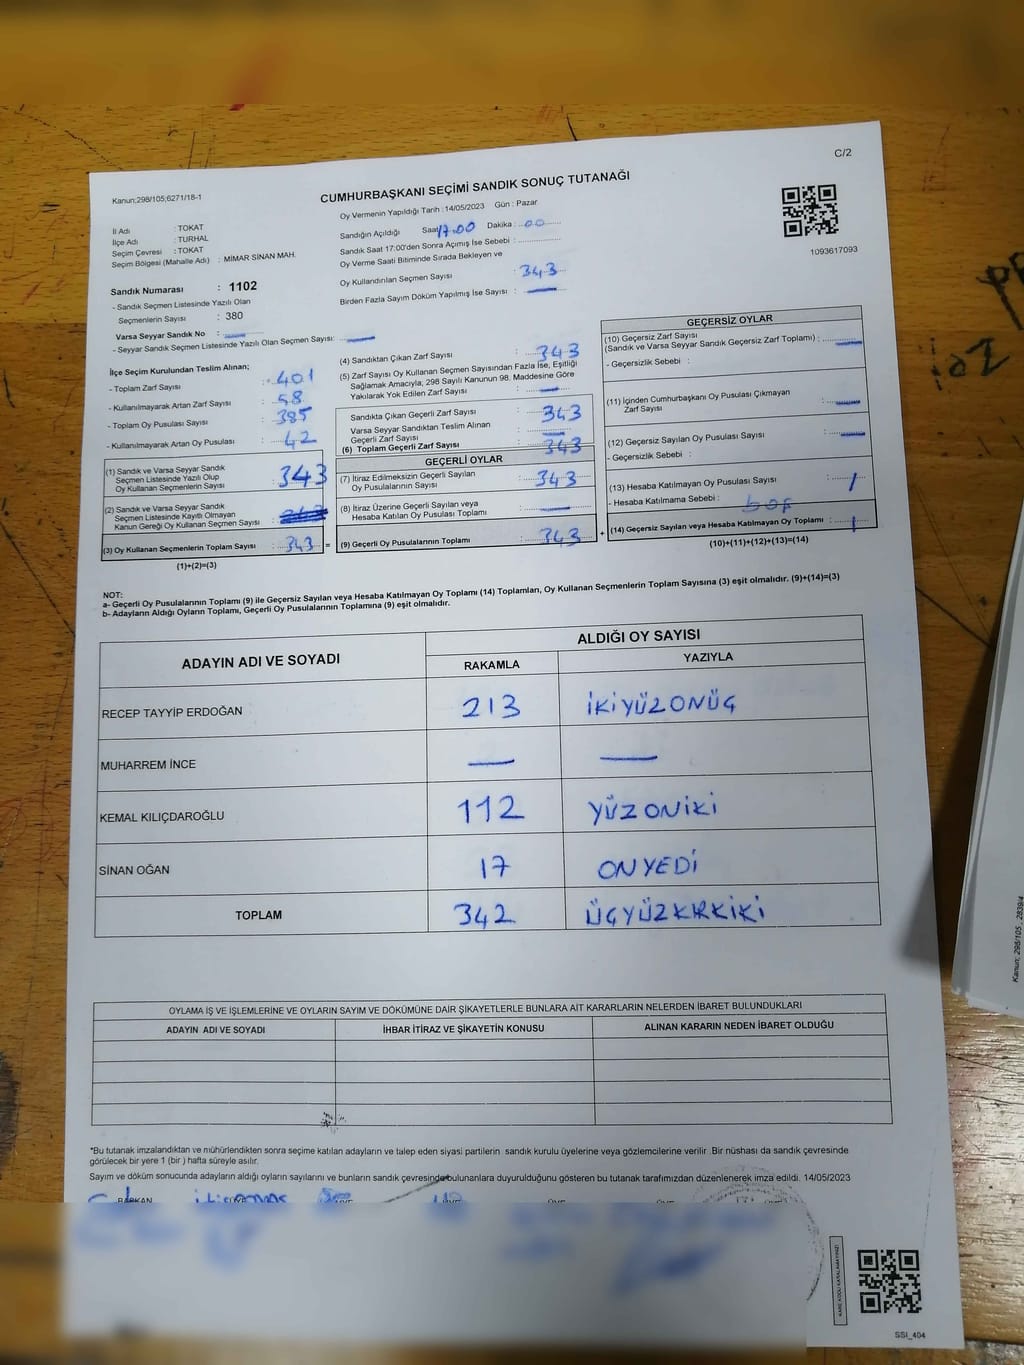 C/2
Kanun;298/105;6271/18-1
CUMHURBAŞKANI SEÇİMİ SANDIK SONUÇ TUTANAĞI
Oy Vermenin Yapıldığı Tarih : 14/05/2023 Gün : Pazar
İl Adı : TOKAT
İlçe Adı : TURHAL
Seçim Çevresi : TOKAT
Seçim Bölgesi (Mahalle Adı) : MİMAR SİNAN MAH.
Sandığın Açıldığı Saat 17.00 Dakika : 00
Sandık Saat 17:00'den Sonra Açımış İse Sebebi :
Oy Verme Saati Bitiminde Sırada Bekleyen ve
Oy Kullandırılan Seçmen Sayısı : 343
Birden Fazla Sayım Döküm Yapılmış İse Sayısı : —
1093617093
Sandık Numarası : 1102
- Sandık Seçmen Listesinde Yazılı Olan
Seçmenlerin Sayısı : 380
Varsa Seyyar Sandık No : —
- Seyyar Sandık Seçmen Listesinde Yazılı Olan Seçmen Sayısı : —
İlçe Seçim Kurulundan Teslim Alınan;
- Toplam Zarf Sayısı : 401
- Kullanılmayarak Artan Zarf Sayısı : 58
- Toplam Oy Pusulası Sayısı : 385
- Kullanılmayarak Artan Oy Pusulası : 42
(1) Sandık ve Varsa Seyyar Sandık
Seçmen Listesinde Yazılı Olup
Oy Kullanan Seçmenlerin Sayısı : 343
(2) Sandık ve Varsa Seyyar Sandık
Seçmen Listesinde Kayıtlı Olmayan
Kanun Gereği Oy Kullanan Seçmen Sayısı :
(3) Oy Kullanan Seçmenlerin Toplam Sayısı : 343 =
(1)+(2)=(3)
(4) Sandıktan Çıkan Zarf Sayısı : 343
(5) Zarf Sayısı Oy Kullanan Seçmen Sayısından Fazla İse, Eşitliği
Sağlamak Amacıyla; 298 Sayılı Kanunun 98. Maddesine Göre
Yakılarak Yok Edilen Zarf Sayısı : —
Sandıkta Çıkan Geçerli Zarf Sayısı : 343
Varsa Seyyar Sandıktan Teslim Alınan
Geçerli Zarf Sayısı : —
(6) Toplam Geçerli Zarf Sayısı : 343
GEÇERLİ OYLAR
(7) İtiraz Edilmeksizin Geçerli Sayılan
Oy Pusulalarının Sayısı : 343
(8) İtiraz Üzerine Geçerli Sayılan veya
Hesaba Katılan Oy Pusulası Toplamı : —
(9) Geçerli Oy Pusulalarının Toplamı : 343 +
GEÇERSİZ OYLAR
(10) Geçersiz Zarf Sayısı
(Sandık ve Varsa Seyyar Sandık Geçersiz Zarf Toplamı) : —
- Geçersizlik Sebebi :
(11) İçinden Cumhurbaşkanı Oy Pusulası Çıkmayan
Zarf Sayısı : —
(12) Geçersiz Sayılan Oy Pusulası Sayısı : —
- Geçersizlik Sebebi :
(13) Hesaba Katılmayan Oy Pusulası Sayısı : 1
- Hesaba Katılmama Sebebi :
(14) Geçersiz Sayılan veya Hesaba Katılmayan Oy Toplamı : 1
(10)+(11)+(12)+(13)=(14)
NOT:
a- Geçerli Oy Pusulalarının Toplamı (9) ile Geçersiz Sayılan veya Hesaba Katılmayan Oy Toplamı (14) Toplamları, Oy Kullanan Seçmenlerin Toplam Sayısına (3) eşit olmalıdır. (9)+(14)=(3)
b- Adayların Aldığı Oyların Toplamı, Geçerli Oy Pusulalarının Toplamına (9) eşit olmalıdır.
ADAYIN ADI VE SOYADI
ALDIĞI OY SAYISI
RAKAMLA YAZIYLA
RECEP TAYYİP ERDOĞAN 213 İKİYÜZONÜÇ
MUHARREM İNCE — —
KEMAL KILIÇDAROĞLU 112 YÜZONİKİ
SİNAN OĞAN 17 ONYEDİ
TOPLAM 342 ÜÇYÜZKIRKİKİ
OYLAMA İŞ VE İŞLEMLERİNE VE OYLARIN SAYIM VE DÖKÜMÜNE DAİR ŞİKAYETLERLE BUNLARA AİT KARARLARIN NELERDEN İBARET BULUNDUKLARI
ADAYIN ADI VE SOYADI İHBAR İTİRAZ VE ŞİKAYETİN KONUSU ALINAN KARARIN NEDEN İBARET OLDUĞU
*Bu tutanak imzalandıktan ve mühürlendikten sonra seçime katılan adayların ve talep eden siyasi partilerin sandık kurulu üyelerine veya gözlemcilerine verilir. Bir nüshası da sandık çevresinde
görülecek bir yere 1 (bir ) hafta süreyle asılır.
Sayım ve döküm sonucunda adayların aldığı oyların sayılarını ve bunların sandık çevresinde bulunanlara duyurulduğunu gösteren bu tutanak tarafımızdan düzenlenerek imza edildi. 14/05/2023
BAŞKAN
SSI_404
Kanun; 298/105 , 2839/4